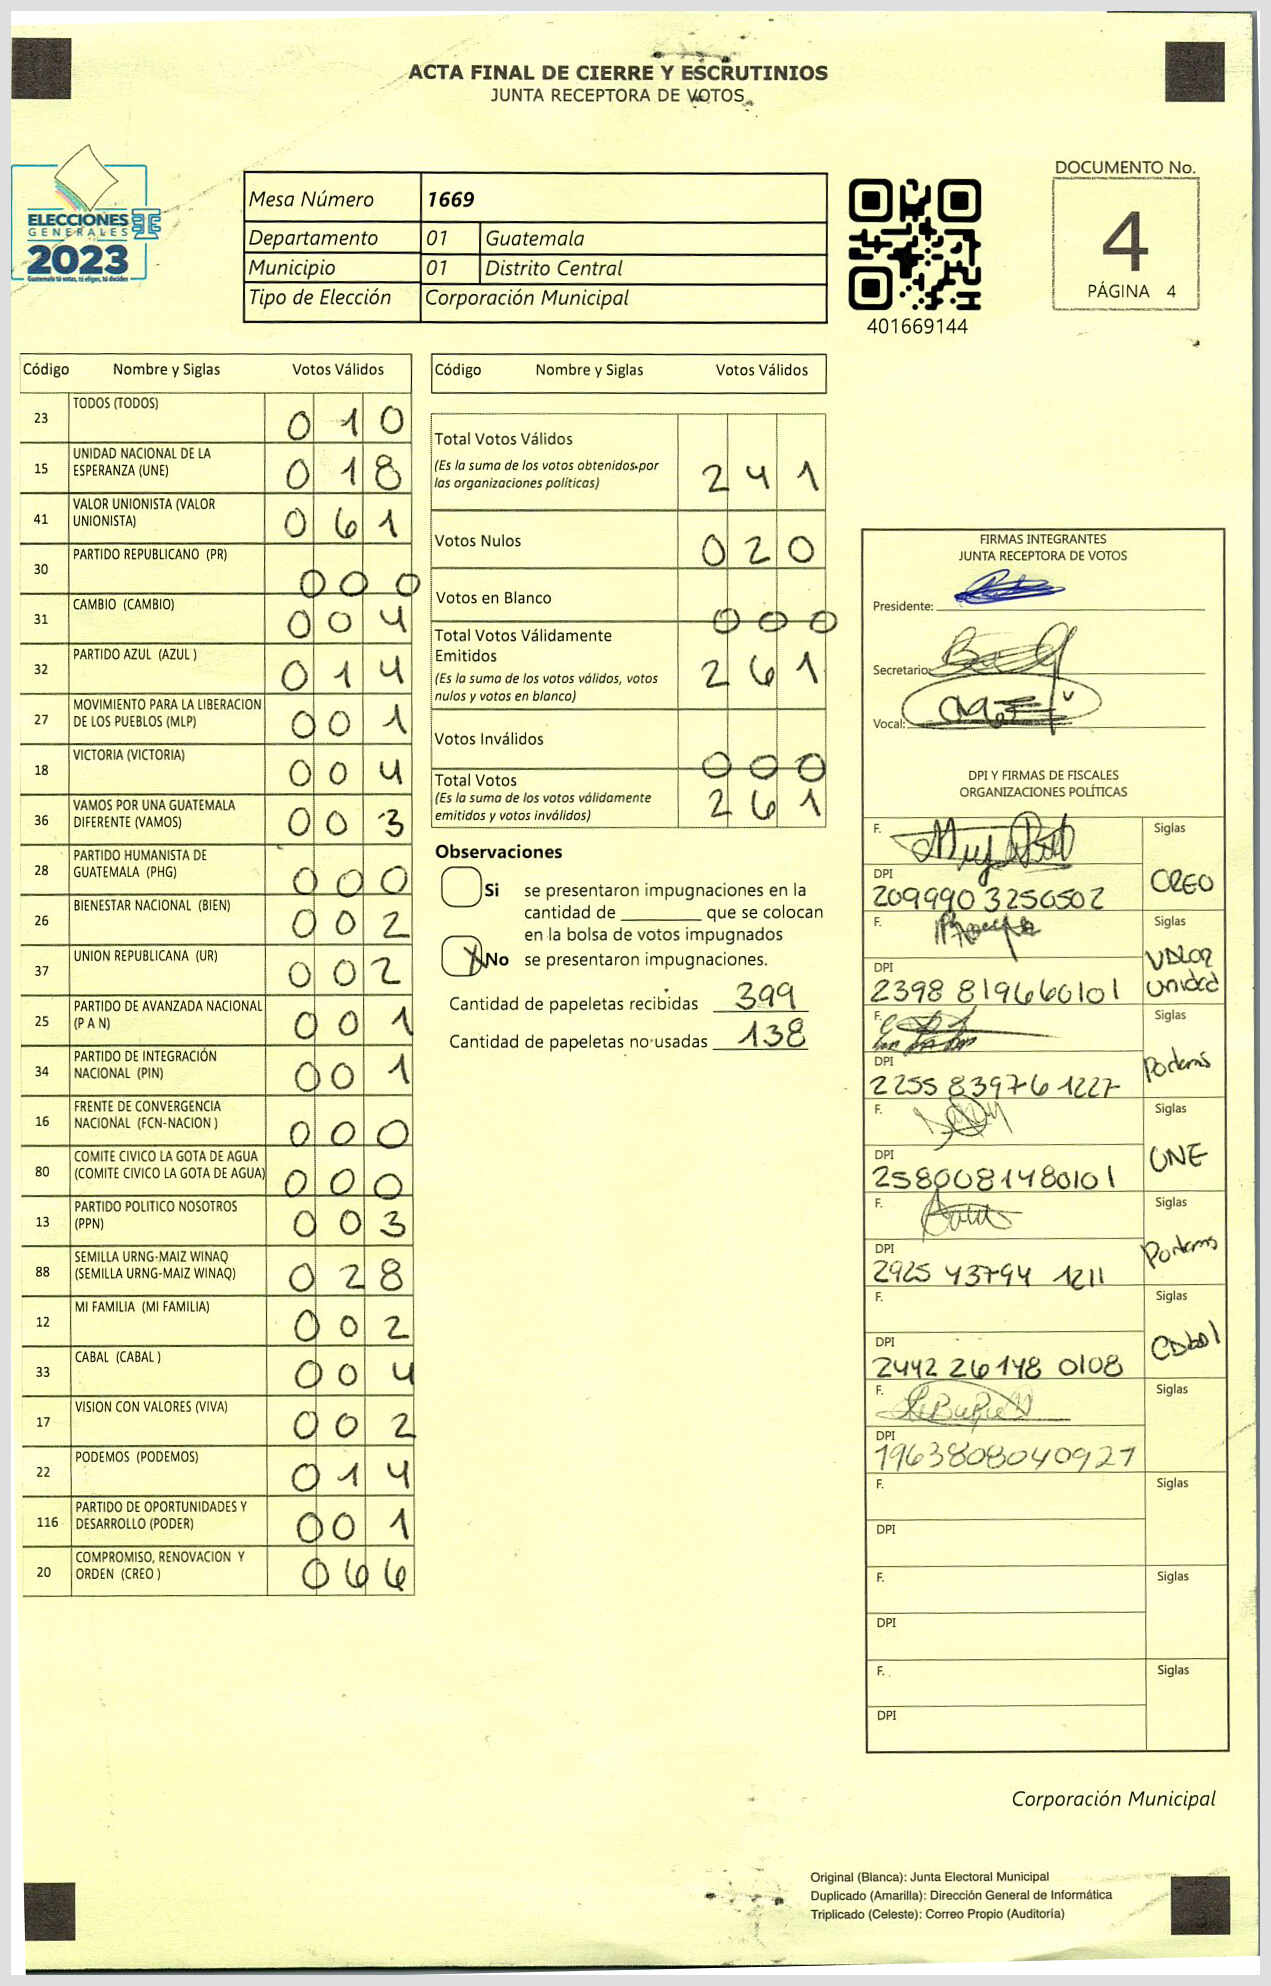 ACTA FINAL DE CIERRE Y ESCRUTINIOS
JUNTA RECEPTORA DE VOTOS
ELECCIONES
GENERALES
2023
Guatemala tú votas, tú eliges, tú decides
Mesa Número 1669
Departamento 01 Guatemala
Municipio 01 Distrito Central
Tipo de Elección Corporación Municipal
401669144
DOCUMENTO No.
4
PÁGINA 4
Código Nombre y Siglas Votos Válidos
23 TODOS (TODOS) 0 1 0
15 UNIDAD NACIONAL DE LA ESPERANZA (UNE) 0 1 8
41 VALOR UNIONISTA (VALOR UNIONISTA) 0 6 1
30 PARTIDO REPUBLICANO (PR) 0 0 0
31 CAMBIO (CAMBIO) 0 0 4
32 PARTIDO AZUL (AZUL ) 0 1 4
27 MOVIMIENTO PARA LA LIBERACION DE LOS PUEBLOS (MLP) 0 0 1
18 VICTORIA (VICTORIA) 0 0 4
36 VAMOS POR UNA GUATEMALA DIFERENTE (VAMOS) 0 0 3
28 PARTIDO HUMANISTA DE GUATEMALA (PHG) 0 0 0
26 BIENESTAR NACIONAL (BIEN) 0 0 2
37 UNION REPUBLICANA (UR) 0 0 2
25 PARTIDO DE AVANZADA NACIONAL (P A N) 0 0 1
34 PARTIDO DE INTEGRACIÓN NACIONAL (PIN) 0 0 1
16 FRENTE DE CONVERGENCIA NACIONAL (FCN-NACION ) 0 0 0
80 COMITE CIVICO LA GOTA DE AGUA (COMITE CIVICO LA GOTA DE AGUA) 0 0 0
13 PARTIDO POLITICO NOSOTROS (PPN) 0 0 3
88 SEMILLA URNG-MAIZ WINAQ (SEMILLA URNG-MAIZ WINAQ) 0 2 8
12 MI FAMILIA (MI FAMILIA) 0 0 2
33 CABAL (CABAL ) 0 0 4
17 VISION CON VALORES (VIVA) 0 0 2
22 PODEMOS (PODEMOS) 0 1 4
116 PARTIDO DE OPORTUNIDADES Y DESARROLLO (PODER) 0 0 1
20 COMPROMISO, RENOVACION Y ORDEN (CREO ) 0 6 6
Código Nombre y Siglas Votos Válidos
Total Votos Válidos
(Es la suma de los votos obtenidos por
las organizaciones políticas) 2 4 1
Votos Nulos 0 2 0
Votos en Blanco 0 0 0
Total Votos Válidamente
Emitidos
(Es la suma de los votos válidos, votos
nulos y votos en blanco) 2 6 1
Votos Inválidos 0 0 0
Total Votos
(Es la suma de los votos válidamente
emitidos y votos inválidos) 2 6 1
Observaciones
Si se presentaron impugnaciones en la
cantidad de ________ que se colocan
en la bolsa de votos impugnados
X No se presentaron impugnaciones.
Cantidad de papeletas recibidas 399
Cantidad de papeletas no usadas 138
FIRMAS INTEGRANTES
JUNTA RECEPTORA DE VOTOS
Presidente:
Secretario:
Vocal:
DPI Y FIRMAS DE FISCALES
ORGANIZACIONES POLÍTICAS
F. Siglas
DPI CREO
209990 3256502
F. Siglas
DPI Valor Unidad
2398 819660101
F. Siglas
DPI Podemos
2255 83976 1227
F. Siglas
DPI UNE
2580081480101
F. Siglas
DPI Podemos
2925 43794 1211
F. Siglas
DPI Cabal
2442 26148 0108
F. Siglas
DPI
1963808040927
F. Siglas
DPI
F. Siglas
DPI
F. Siglas
DPI
Corporación Municipal
Original (Blanca): Junta Electoral Municipal
Duplicado (Amarilla): Dirección General de Informática
Triplicado (Celeste): Correo Propio (Auditoría)